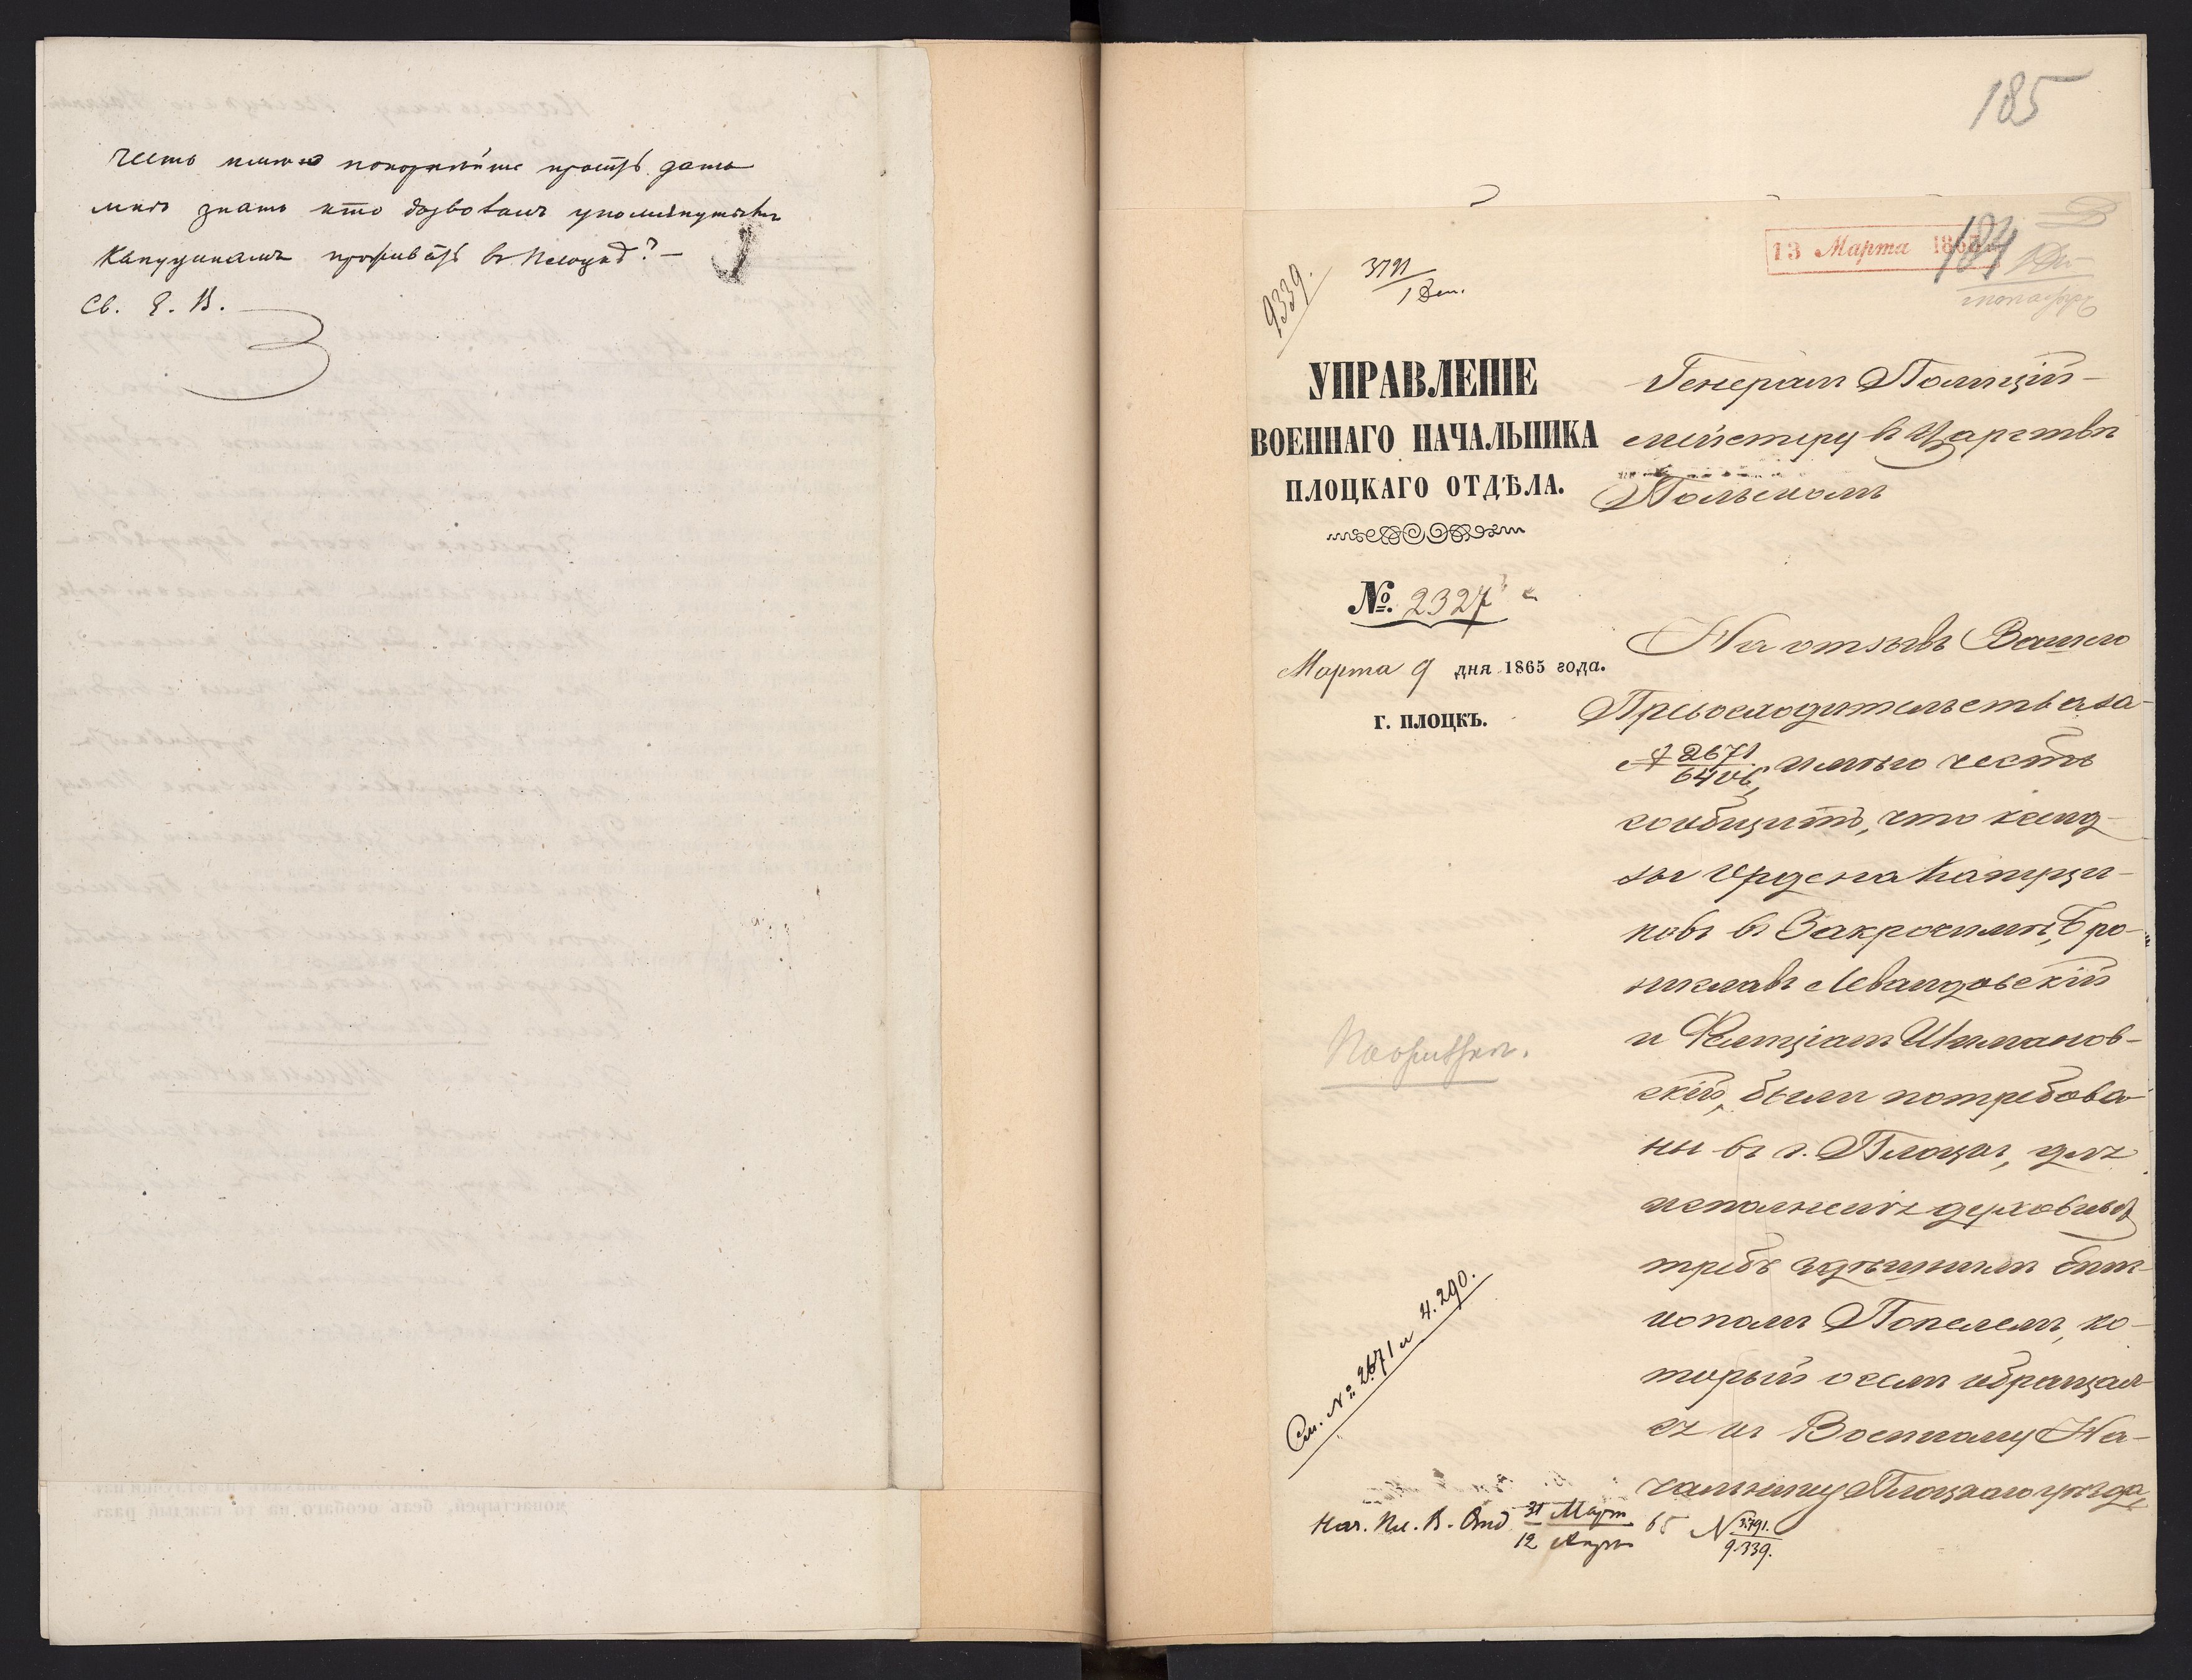 честь имѣю покорнѣйше просить дать
мнѣ знать кто дозволилъ упомянутымъ
Капуцинамъ проживать въ Плоцкѣ? —
Св. Е. В.
185
13 Марта 1865
184
9339.
3791
1 Вен.
УПРАВЛЕНІЕ
ВОЕННАГО НАЧАЛЬНИКА
ПЛОЦКАГО ОТДѢЛА.
№ 2327
Марта 9 дня 1865 года.
г. ПЛОЦКЪ.
Генералъ Полицій-
мейстеру въ Царствѣ
Польскомъ
На отзывъ Вашего
Превосходительства за
№ 2671/6406, имѣю честь
сообщить, что ксенд-
зы Ордена Капуци-
новъ въ Закрочимѣ, Бро-
ниславъ Левандовскій
и Фелиціанъ Шимановъ-
скій, были потребова-
ны въ г. Плоцкъ, для
исполненія духовныхъ
требъ здѣшнимъ Епис-
копомъ Попелемъ, ко-
торый о семъ обращал-
ся къ Военному На-
чальнику Плоцкаго уѣзда,
См. № 2671 и 4.290.
Нач. Пл. В. Отд. 31 Март/12 Апрѣ 65 N 3791./9339.